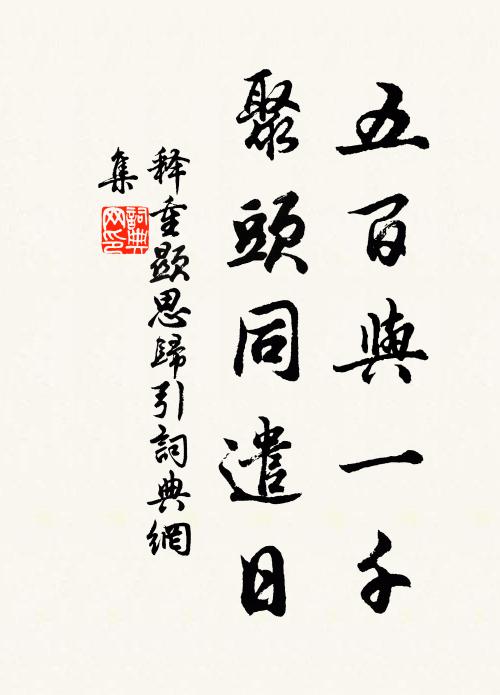 五百與一千
聚頭同遣日
释重顯思歸引詞典網
集
詞典
网印